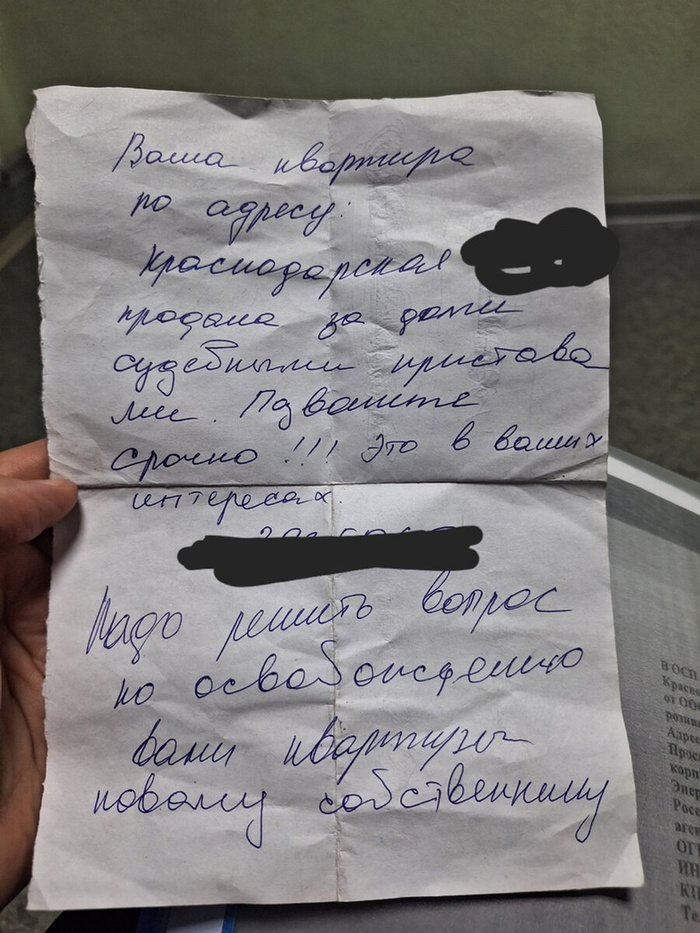 Ваша квартира
по адресу:
Краснодарская
продана за долги
судебными пристава
ми. Позвоните
срочно!!! Это в ваших
интересах.
Надо решить вопрос
по освобождению
вами квартиры
новому собственнику
В ОСП
Красно
от Об
Адрес
Прос
корп
Энер
Росс
аген
ОГ
ИН
КП
Те